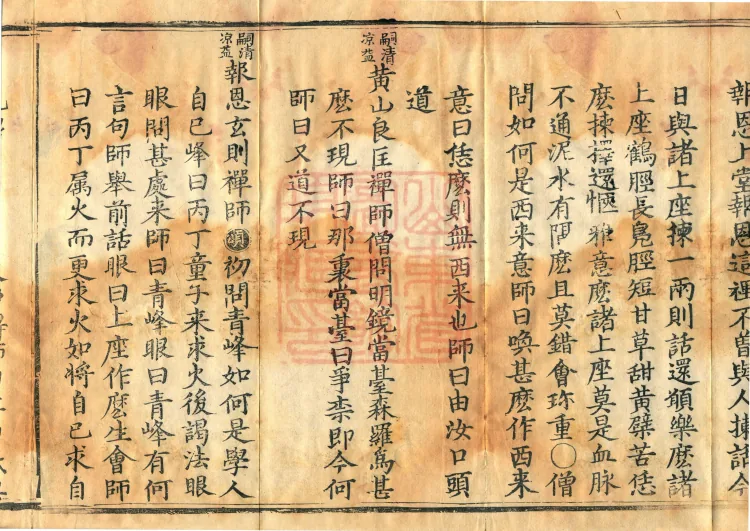 報恩上堂報恩這裡不曾與人揀話今
日與諸上座揀一兩則話還願樂麽諸
上座鶴脛長鳬脛短甘草甜黄蘗苦恁
麽揀擇還愜雅意麽諸上座莫是血脉
不通泥水有隔麽且莫錯會珎重○僧
問如何是西来意師曰喚甚麽作西来
意曰恁麽則無西来也師曰由汝口頭
道
嗣清凉益
黄山良匡禪師僧問明鏡當臺森羅爲甚
麽不現師曰那裏當臺曰爭柰即今何
師曰又道不現
嗣清凉益
報恩玄則禪師頌初問青峰如何是學人
自己峰曰丙丁童子来求火後謁法眼
眼問甚處来師曰青峰眼曰青峰有何
言句師舉前話眼曰上座作麽生會師
曰丙丁属火而更求火如將自己求自